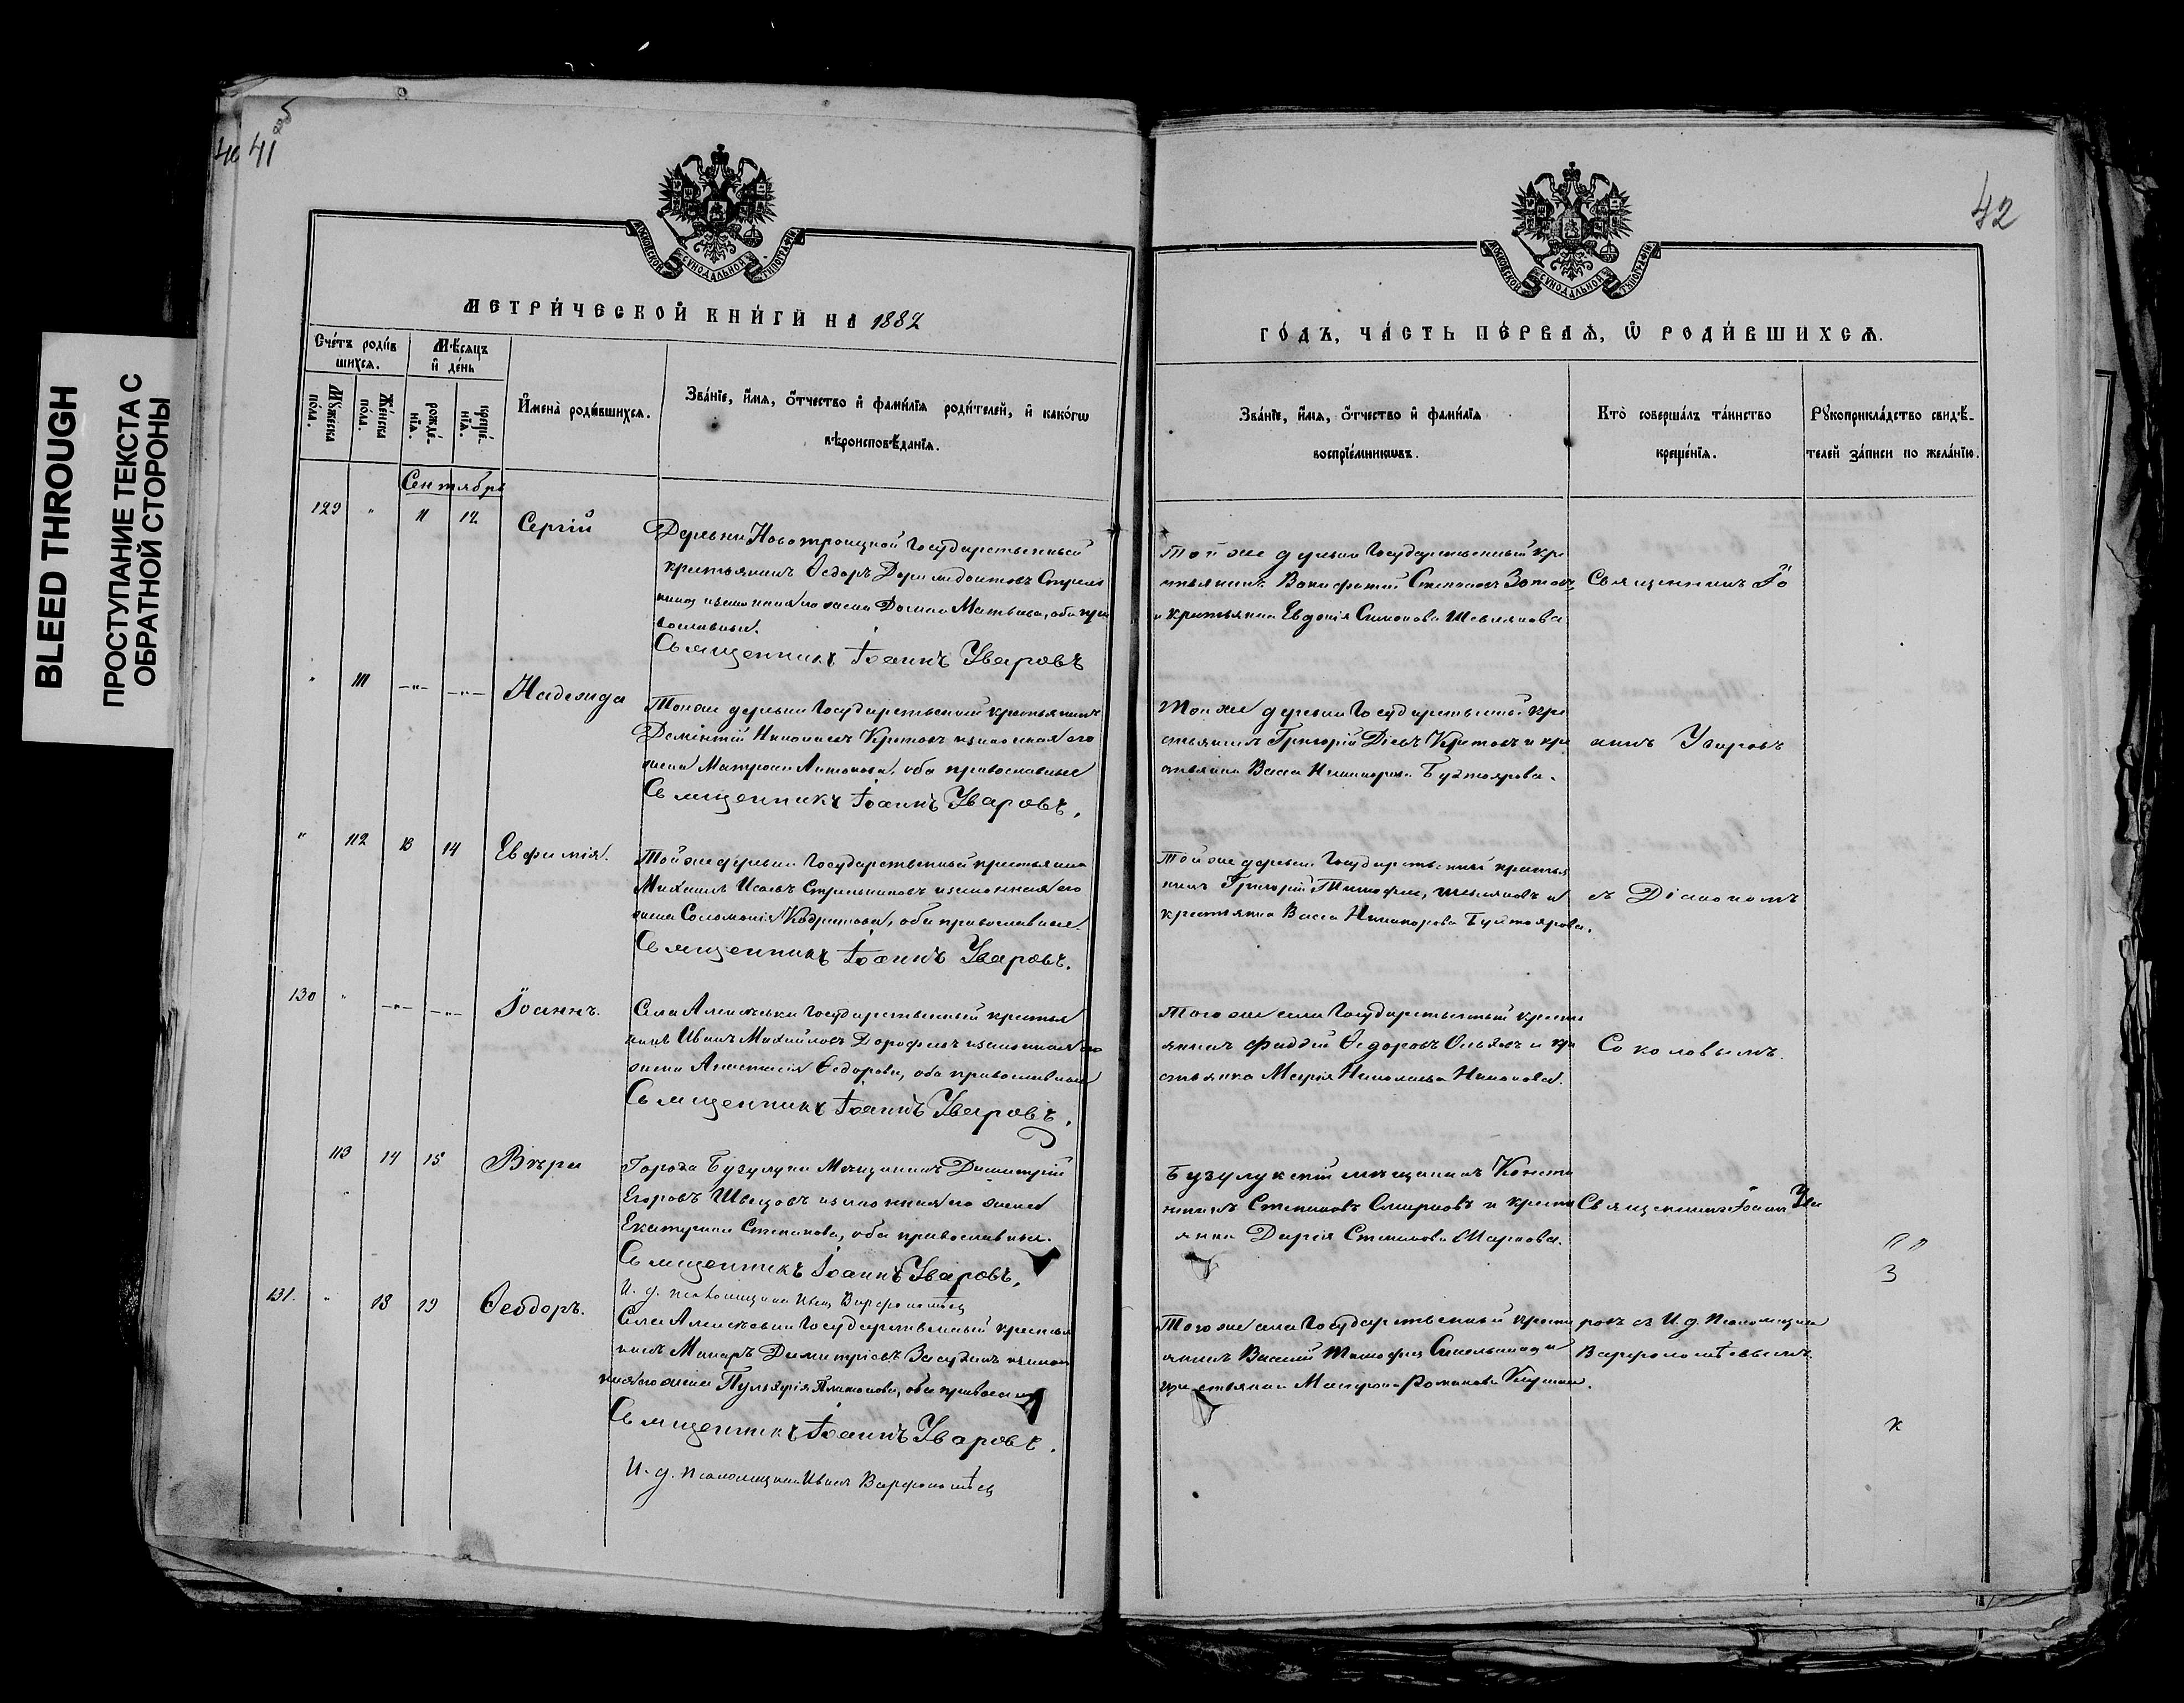 BLEED THROUGH
ПРОСТУПАНИЕ ТЕКСТА С
ОБРАТНОЙ СТОРОНЫ
41
МОСКОВСКОЙ СУНОДАЛЬНОЙ ТИПОГРАФІИ
МЕТРИ́ЧЕСКОЙ КНИ́ГИ НА 1882
Сче́тъ роди́в
шихсѧ.
Мѣ́сѧцъ
и҆ де́нь
Мꙋ́жеска
по́ла.
Же́нска
по́ла.
рожде́-
нїѧ.
креще́-
нїѧ.
И҆мена̀ роди́вшихсѧ.
Зва́нїе, и҆́мѧ, ѻ҆́тчество и҆ фами́лїѧ роди́телей, и҆ како́гѡ
вѣроисповѣ́данїѧ.
Сентябрь
129 " 11 12 Сергій
Деревни Новотроицкой Государственный
крестьянинъ Ѳедоръ
законная его жена Матвѣева, оба пра
вославные.
Священникъ Іоаннъ Уваровъ
" 111 -"- -"- Надежда
Тойже деревни Государственный крестьянинъ
Дементій Николаевъ Кретовъ и законная его
жена Матрона Антонова, оба православные
Священникъ Іоаннъ Уваровъ.
" 112 13 14 Евфимія.
Тойже деревни Государственный крестьянинъ
Михаилъ Исаевъ Стрельниковъ и законная его
жена Соломонія, оба православные.
Священникъ Іоаннъ Уваровъ.
130 " -"- -"- Іоаннъ.
Села Алексѣевки Государственный крестья
нинъ Иванъ Михайловъ Дорофеевъ и законная его
жена Анастасія Ѳедорова, оба православные
Священникъ Іоаннъ Уваровъ.
113 14 15 Вѣра
Города Бузулука Мѣщанинъ Димитрій
Егоровъ Швецовъ и законная его жена
Екатерина Степанова, оба православные.
Священникъ Іоаннъ Уваровъ.
И. д. псаломщика Иванъ Варфоломѣевъ
131. " 18 19 Ѳеодоръ.
Села Алексѣевки Государственный крестья
нинъ Макаръ Димитріевъ и закон
ная его жена, оба православные
Священникъ Іоаннъ Уваровъ.
И. д. псаломщика Иванъ Варфоломѣевъ
42
МОСКОВСКОЙ СУНОДАЛЬНОЙ ТИПОГРАФІИ
ГО́ДЪ, ЧА́СТЬ ПЕ́РВАѦ, Ѡ҆ РОДИ́ВШИХСѦ.
Зва́нїе, и҆́мѧ, ѻ҆́тчество и҆ фами́лїѧ
воспрїе́мникѡвъ.
Кто̀ соверша́лъ та́инство
креще́нїѧ.
Рꙋкоприкла́дство свидѣ́-
телей за́писи по жела́нїю.
Тойже деревни Государственный кре
стьянинъ Вонифатій Степановъ Зотовъ
и крестьянка Евдокія Симонова
Священникъ Іо
Тойже деревни Государственный кре
стьянинъ Григорій Кретовъ и кре
стьянка Васса Никанорова Буйтоярова.
аннъ Уваровъ
Тойже деревни Государственный крестья
нинъ Григорій и
крестьянка Васса Никанорова Буйтоярова.
съ Діакономъ
Тогоже села Государственный кресть
янинъ Фаддій Ѳедоровъ и кре
стьянка Марія Николаева
Соколовымъ.
Бузулукскій мѣщанинъ Конста
нтинъ Степановъ Смирновъ и кресть
янка Дарія Степанова
Священникъ Іоаннъ Ува
З
Тогоже села Государственный кресть
янинъ Василій и
крестьянка Романова
ровъ съ И. д. Псаломщика
Варфоломѣевымъ.
к